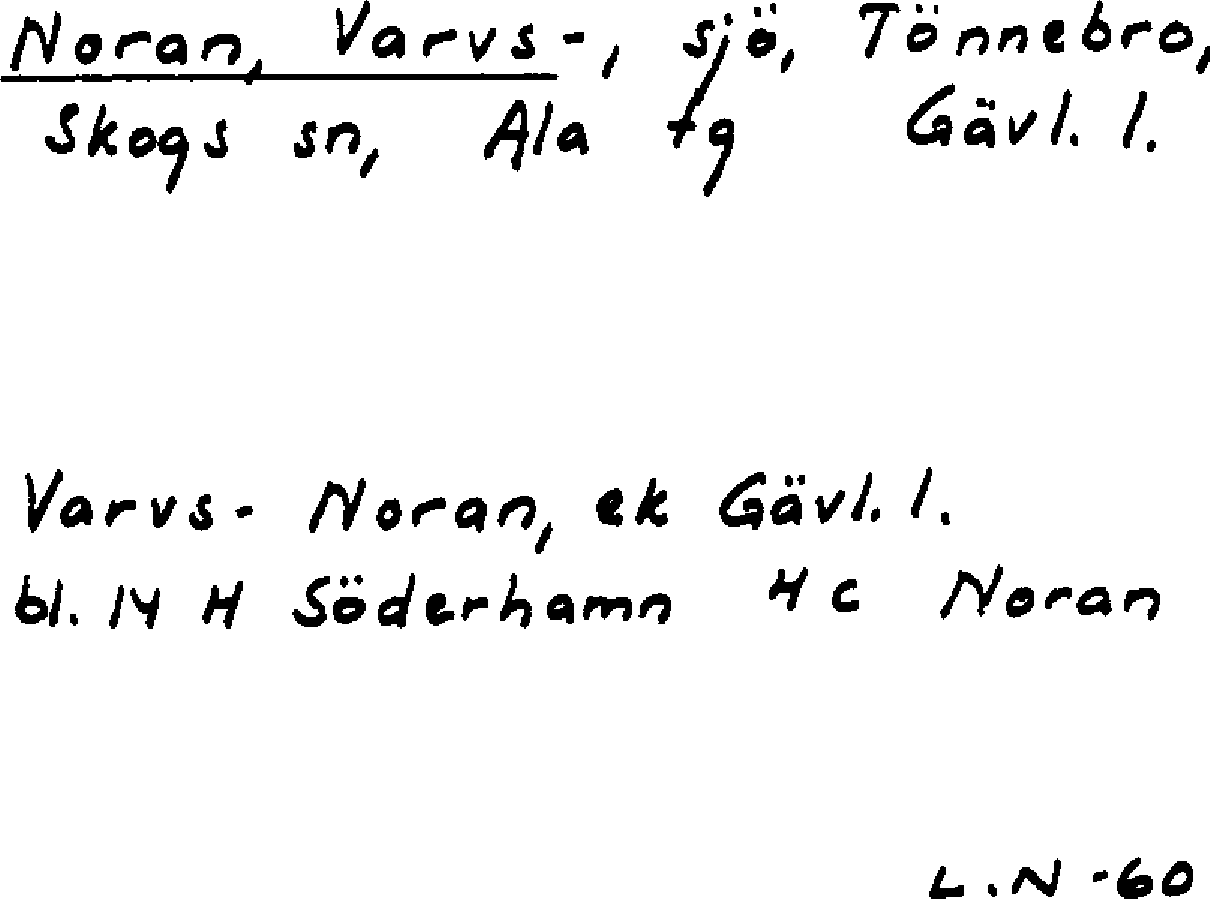 Noran, Varvs-, sjö, Tönnebro,
Skogs sn, Ala tg Gävl. l.
Varvs- Noran, ek Gävl. l.
bl. 14 H Söderhamn 4 c Noran
L.N -60